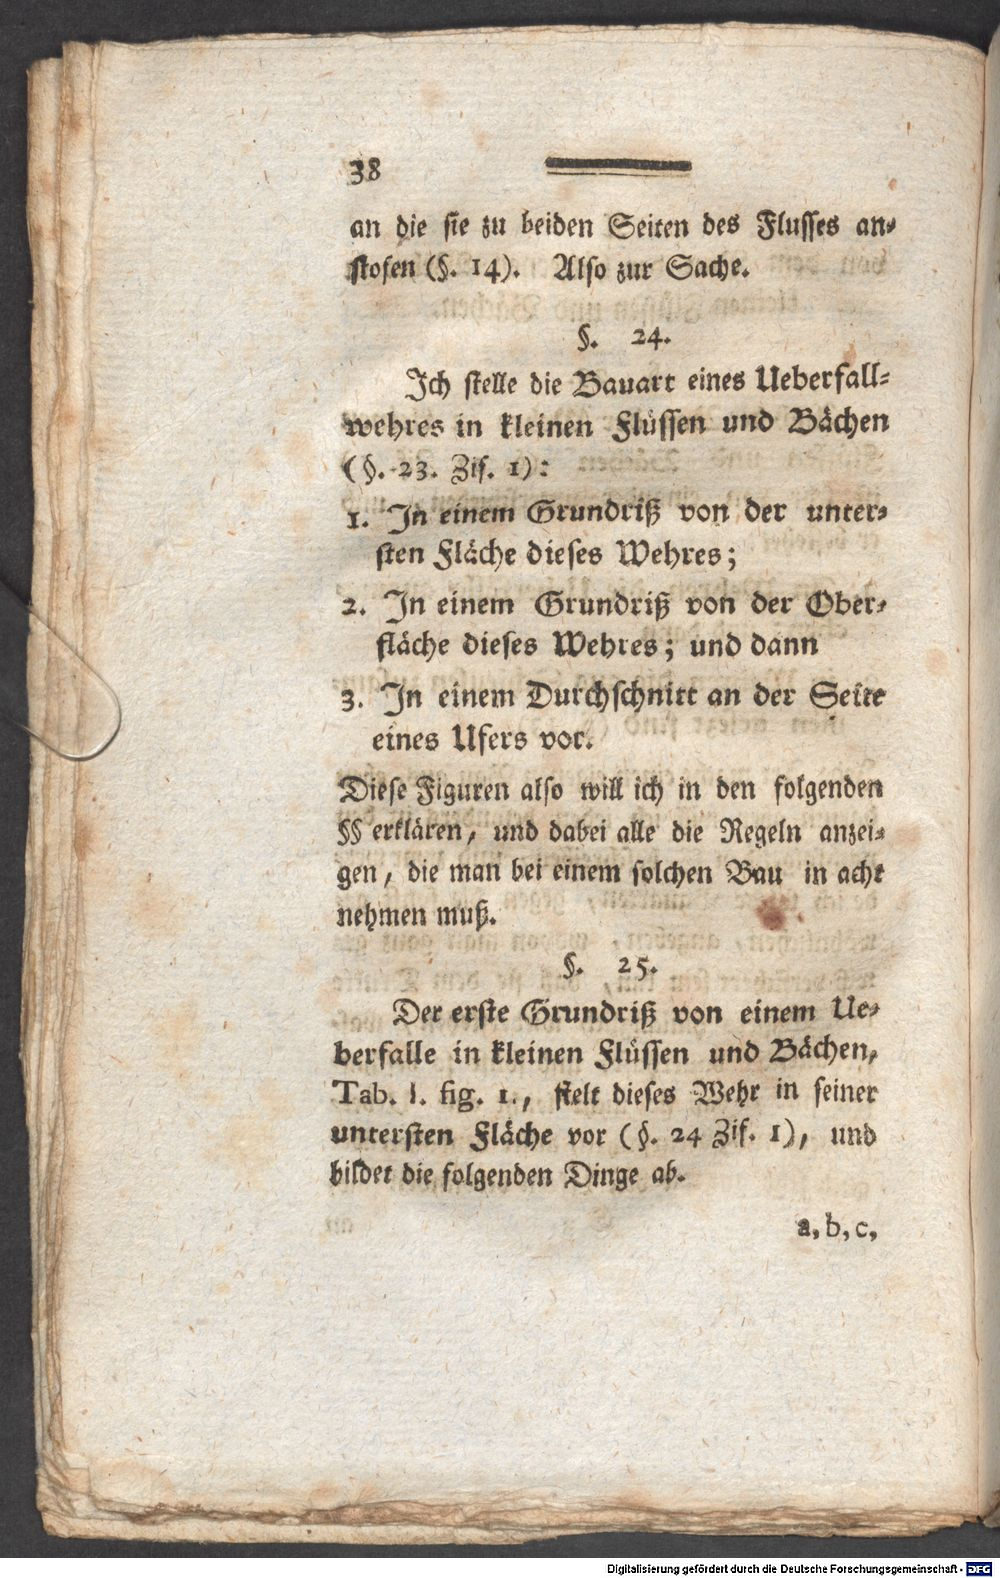 38
an die sie zu beiden Seiten des Flusses an-
stosen (§. 14). Also zur Sache.
§. 24.
Ich stelle die Bauart eines Ueberfall-
wehres in kleinen Flüssen und Bächen
(§. 23. Zif. 1):
1. In einem Grundriß von der unter-
sten Fläche dieses Wehres;
2. In einem Grundriß von der Ober-
fläche dieses Wehres; und dann
3. In einem Durchschnitt an der Seite
eines Ufers vor.
Diese Figuren also will ich in den folgenden
§§ erklären, und dabei alle die Regeln anzei-
gen, die man bei einem solchen Bau in acht
nehmen muß.
§. 25.
Der erste Grundriß von einem Ue-
berfalle in kleinen Flüssen und Bächen,
Tab. I. fig. 1., stelt dieses Wehr in seiner
untersten Fläche vor (§. 24 Zif. 1), und
bildet die folgenden Dinge ab.
a, b, c,
Digitalisierung gefördert durch die Deutsche Forschungsgemeinschaft - DFG